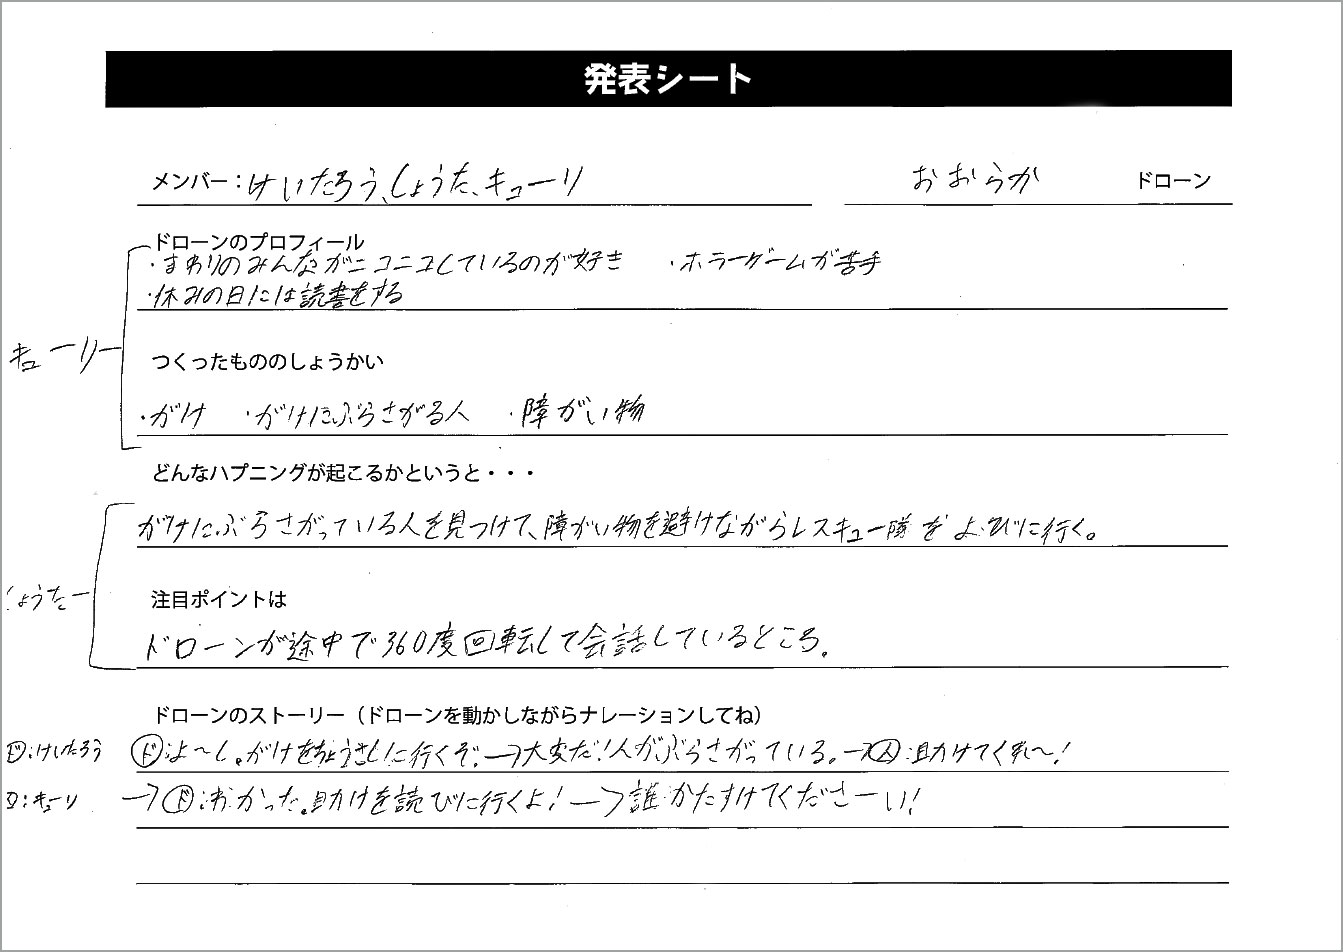 発表シート
メンバー：けいたろう、しょうた、キューリ　おおらか ドローン
ドローンのプロフィール
・まわりのみんながニコニコしているのが好き　・ホラーゲームが苦手
・休みの日には読書をする
キューリー
つくったもののしょうかい
・がけ　・がけにぶらさがる人　・障がい物
どんなハプニングが起こるかというと・・・
がけにぶらさがっている人を見つけて、障がい物を避けながらレスキュー隊をよびに行く。
しょうたー
注目ポイントは
ドローンが途中で360度回転して会話しているところ。
ドローンのストーリー（ドローンを動かしながらナレーションしてね）
ド:けいたろう　ド:よ～し。がけをちょうさしに行くぞ。→大変だ！人がぶらさがっている。→人:助けてくれ～！
:キューリ　→ド:わかった。助けを読びに行くよ！→誰かたすけてくださーい！